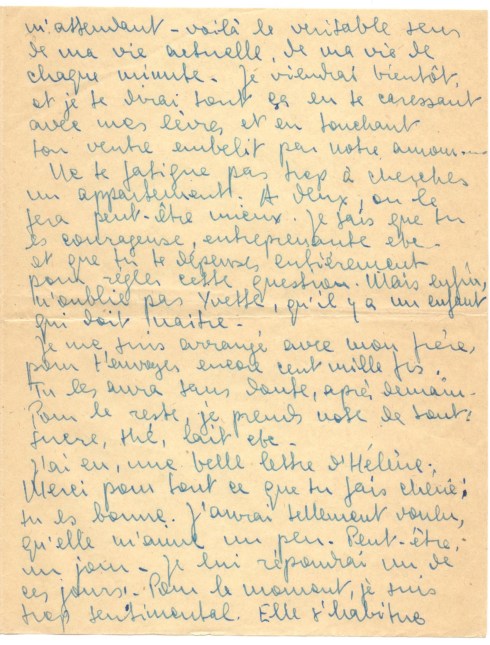 m'attendant - voilà le veritable sens
de ma vie actuelle, de ma vie de
chaque minute. Je viendrai bientôt,
et je te dirai tout ça en te caressant
avec mes lèvres et en touchant
ton ventre embelit par notre amour...
Ne te fatigue pas trop à cherches
un appartement. A deux, on le
fera peut-être mieux. Je sais que tu
es courageuse, entreprenante etc.
et que tu te dépenses entièrement
pour régler cette question. Mais enfin,
n'oublie pas Yvette, qu'il y a un enfant
qui doit naître.
Je me suis arrangé avec mon frère,
pour t'envoyer encore cent mille frs.
Tu les aura sans doute, après demain.
Pour le reste, je prends note de tout:
sucre, thé, lait etc.
J'ai eu, une belle lettre d'Hélène.
Merci pour tout ce que tu fais cherie;
tu es bonne. J'aurai tellement voulu,
qu'elle m'aime un peu. Peut-être,
un jour. Je lui répondrai un de
ces jours. Pour le moment, je suis
trop sentimental. Elle s'habitue